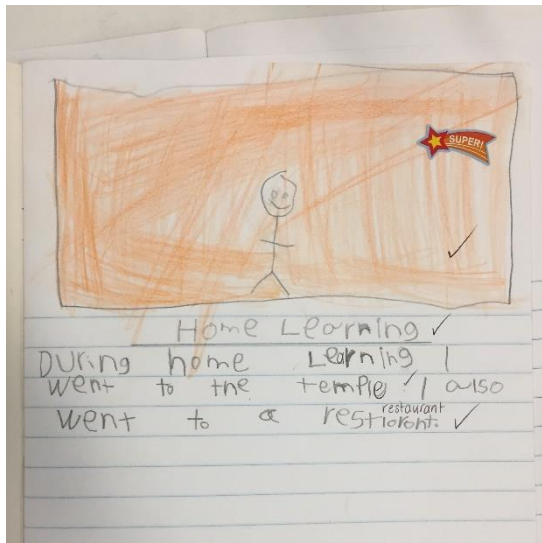 SUPER!
Home Learning
During home Learning I
went to the temple. I also
restaurant
went to a restioront.